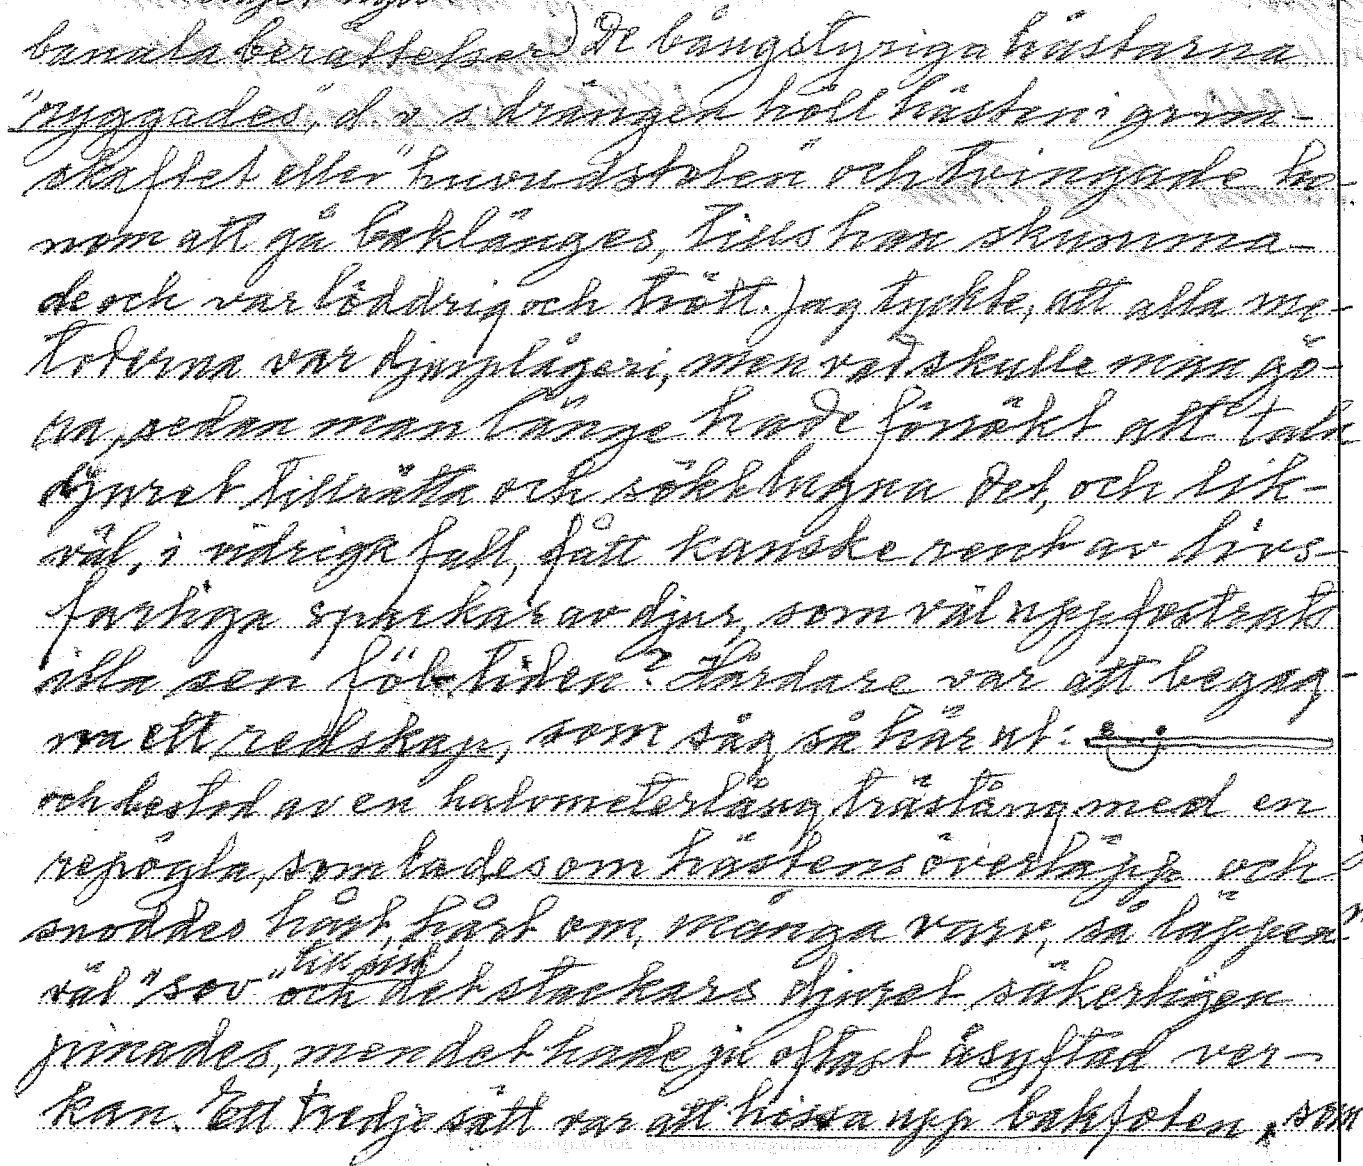 banala berättelser) De bångstyriga hästarna
"ryggades", d. v. s. drängen höll hästen i grim-
skaftet eller "huvudstolen" och tvingade ho-
nom att gå baklänges, tills han skumma-
de och var löddrig och trött. Jag tyckte, att alla me-
toderna var djurplågeri, men vad skulle man gö-
ra, sedan man länge hade försökt att tala
djuret tillrätta och sökt lugna det, och lik-
väl, i vidriga fall, fått kanske rent av livs-
farliga sparkar av djur, som väl uppfostrats
illa sen föl-tiden? Hårdare var att begag-
na ett redskap, som såg så här ut:
och bestod av en halvmeterlång trästång med en
repögla, som lades om hästens överläpp och
snoddes hårt, hårt om, många varv, så läppen
till sist
väl "sov" och det stackars djuret säkerligen
pinades, men det hade ju oftast åsyftad ver-
kan. Ett tredje sätt var att hissa upp bakfoten, som